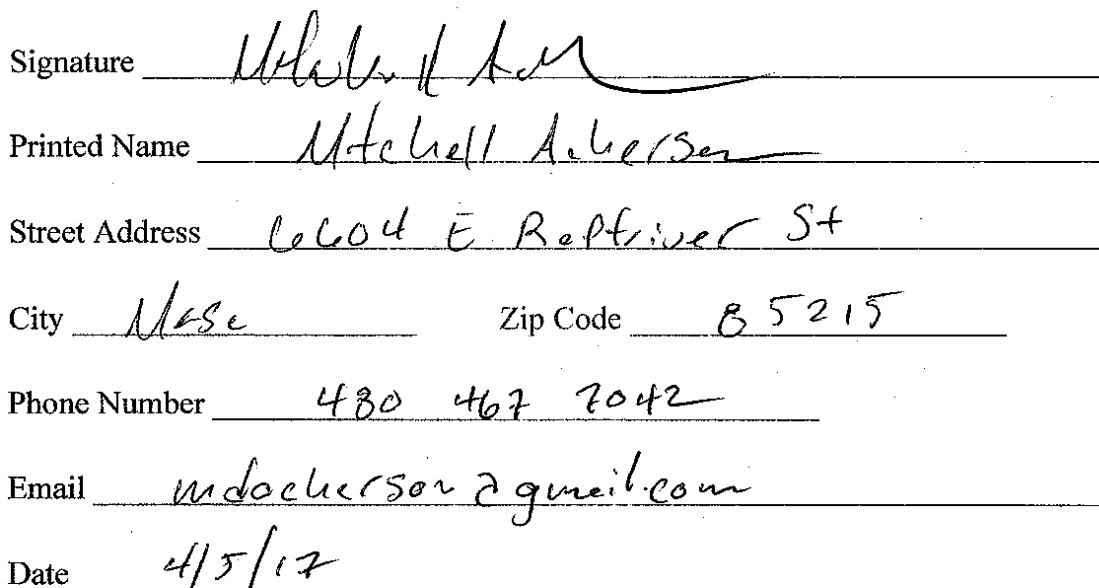 Signature
Printed Name Mitchell Ackerson
Street Address 6604 E Raftriver St
City Mesa Zip Code 85215
Phone Number 480 467 7042
Email mdackerson@gmail.com
Date 4/5/17